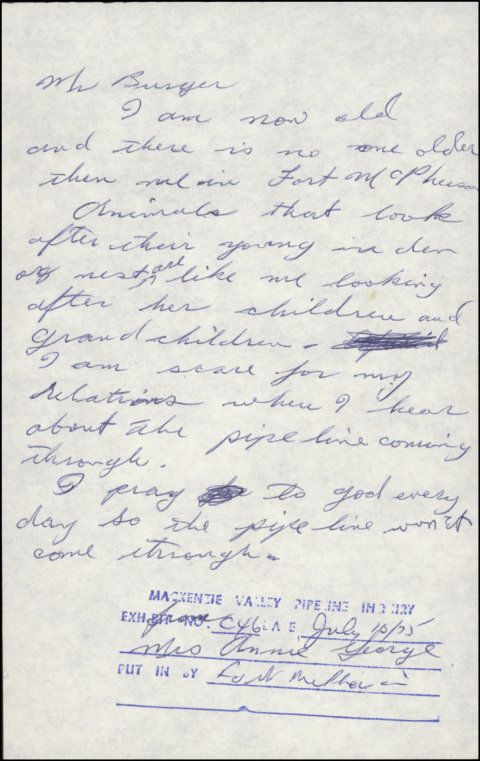 Mr Burger
I am now old
and there is no one older
then me in Fort McPherson
Animals that look
after their young in den
or nest are like me looking
after her children and
grand children.
I am scare for my
relations when I hear
about the pipe line coming
through.
I pray to god every
day so the pipe line won't
come through.
MACKENZIE VALLEY PIPELINE INQUIRY
from
EXHIBIT NO. C46 July 10/75
Mrs Annie George
PUT IN BY Fort McPherson